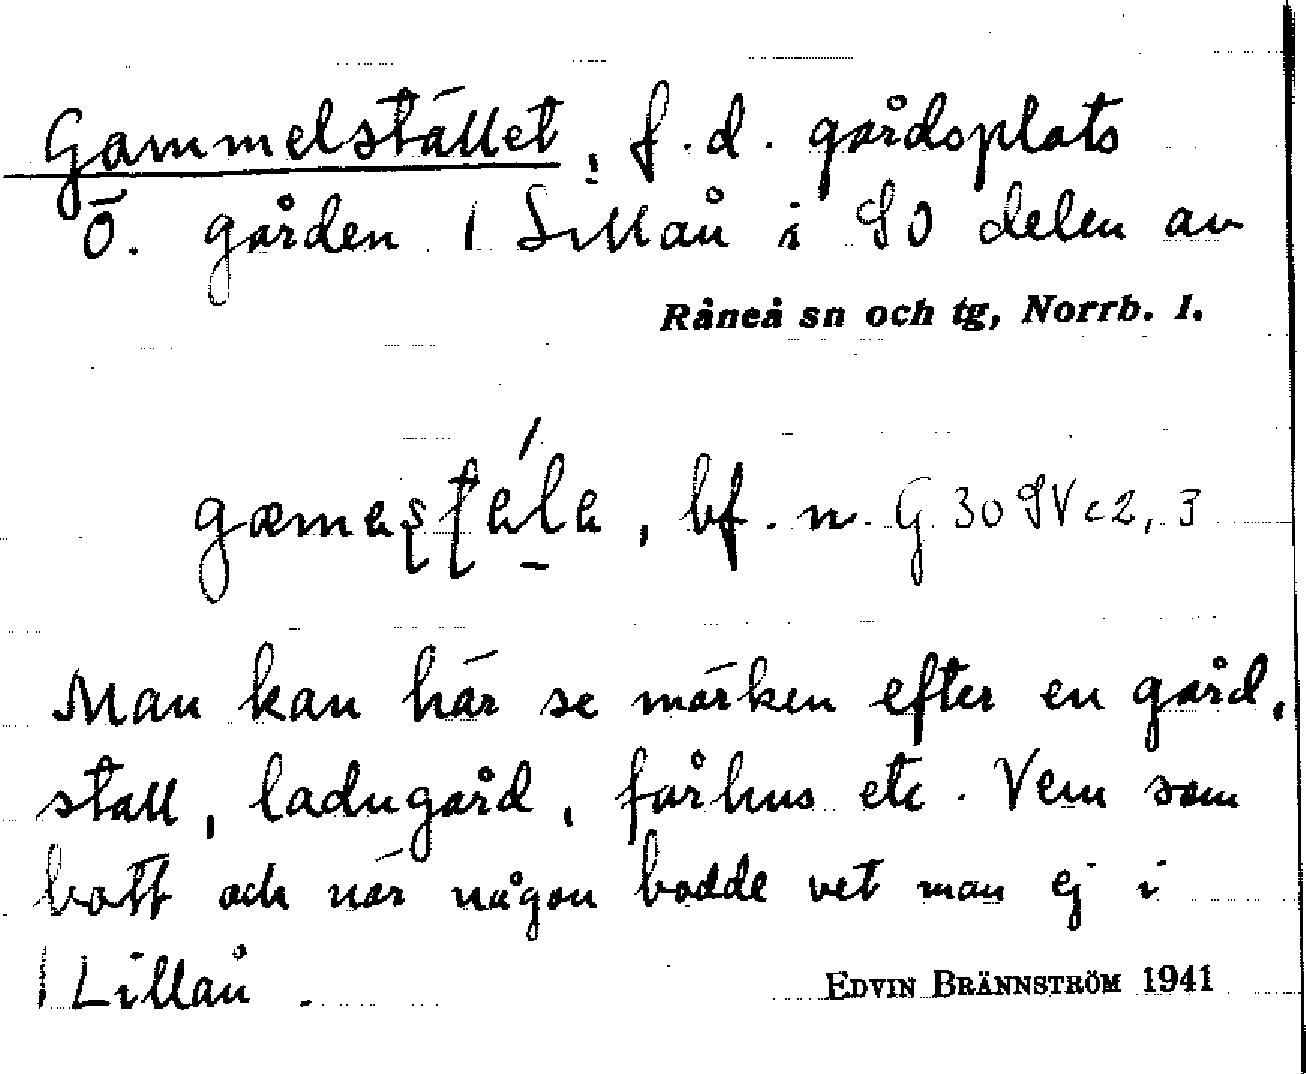 Gammelstället, f.d. gårdsplats
Ö. gården | Lillån i SO delen av
Råneå sn och tg, Norrb. l.
bf. n. G 30 SV c 2, 3
Man kan här se märken efter en gård,
stall, ladugård, fårhus etc. Vem som
bott och när någon bodde vet man ej i
| Lillån.
EDVIN BRÄNNSTRÖM 1941